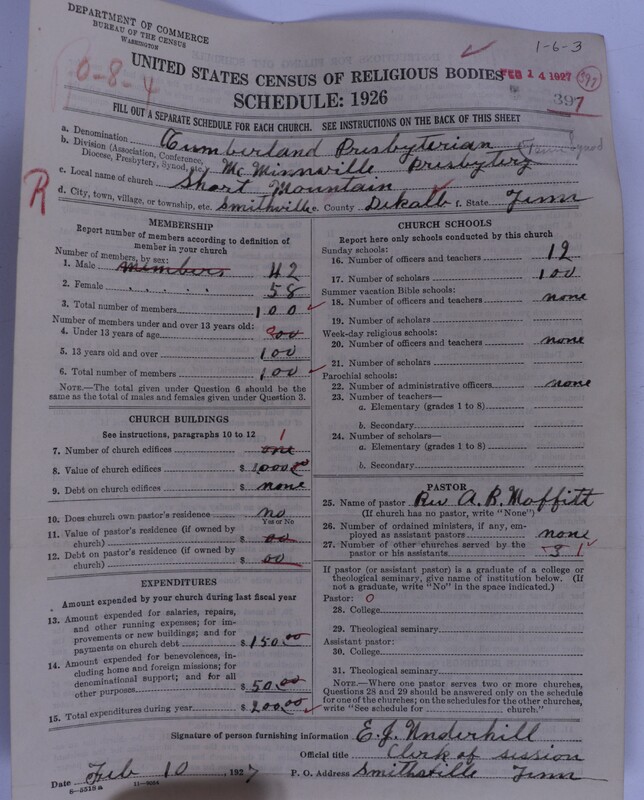 DEPARTMENT OF COMMERCE
BUREAU OF THE CENSUS
WASHINGTON
1-6-3
0-8-4
UNITED STATES CENSUS OF RELIGIOUS BODIES
FEB 14 1927
397
SCHEDULE: 1926
397
FILL OUT A SEPARATE SCHEDULE FOR EACH CHURCH. SEE INSTRUCTIONS ON THE BACK OF THIS SHEET
a. Denomination Cumberland Presbyterian
b. Division (Association, Conference, Diocese, Presbytery, Synod, etc.) McMinnville Presbytery Tenn Synod
c. Local name of church Short Mountain
R
d. City, town, village, or township, etc. Smithville e. County Dekalb f. State Tenn
MEMBERSHIP
Report number of members according to definition of member in your church
Number of members, by sex:
1. Male members 42
2. Female 58
3. Total number of members 100
Number of members under and over 13 years old:
4. Under 13 years of age
5. 13 years old and over 100
6. Total number of members 100
NOTE.—The total given under Question 6 should be the same as the total of males and females given under Question 3.
CHURCH BUILDINGS
See instructions, paragraphs 10 to 12
7. Number of church edifices one 1
8. Value of church edifices $ 1000.00
9. Debt on church edifices $ none
10. Does church own pastor's residence no
Yes or No
11. Value of pastor's residence (if owned by church) $ 00
12. Debt on pastor's residence (if owned by church) $ 00
EXPENDITURES
Amount expended by your church during last fiscal year
13. Amount expended for salaries, repairs, and other running expenses; for improvements or new buildings; and for payments on church debt $ 150.00
14. Amount expended for benevolences, including home and foreign missions; for denominational support; and for all other purposes $ 50.00
15. Total expenditures during year $ 200.00
CHURCH SCHOOLS
Report here only schools conducted by this church
Sunday schools:
16. Number of officers and teachers 12
17. Number of scholars 100
Summer vacation Bible schools:
18. Number of officers and teachers none
19. Number of scholars
Week-day religious schools:
20. Number of officers and teachers none
21. Number of scholars
Parochial schools:
22. Number of administrative officers none
23. Number of teachers—
a. Elementary (grades 1 to 8)
b. Secondary
24. Number of scholars—
a. Elementary (grades 1 to 8)
b. Secondary
PASTOR
25. Name of pastor Rev A. B. Moffitt
(If church has no pastor, write "None")
26. Number of ordained ministers, if any, employed as assistant pastors none
27. Number of other churches served by the pastor or his assistants 3 1
If pastor (or assistant pastor) is a graduate of a college or theological seminary, give name of institution below. (If not a graduate, write "No" in the space indicated.)
Pastor: 0
28. College
29. Theological seminary
Assistant pastor:
30. College
31. Theological seminary
NOTE.—Where one pastor serves two or more churches, Questions 28 and 29 should be answered only on the schedule for one of the churches; on the schedules for the other churches, write "See schedule for ............ church."
Signature of person furnishing information E. J. Underhill
Official title Clerk of session
Date Feb 10, 1927
P. O. Address Smithville Tenn
8-5518a
11-9084